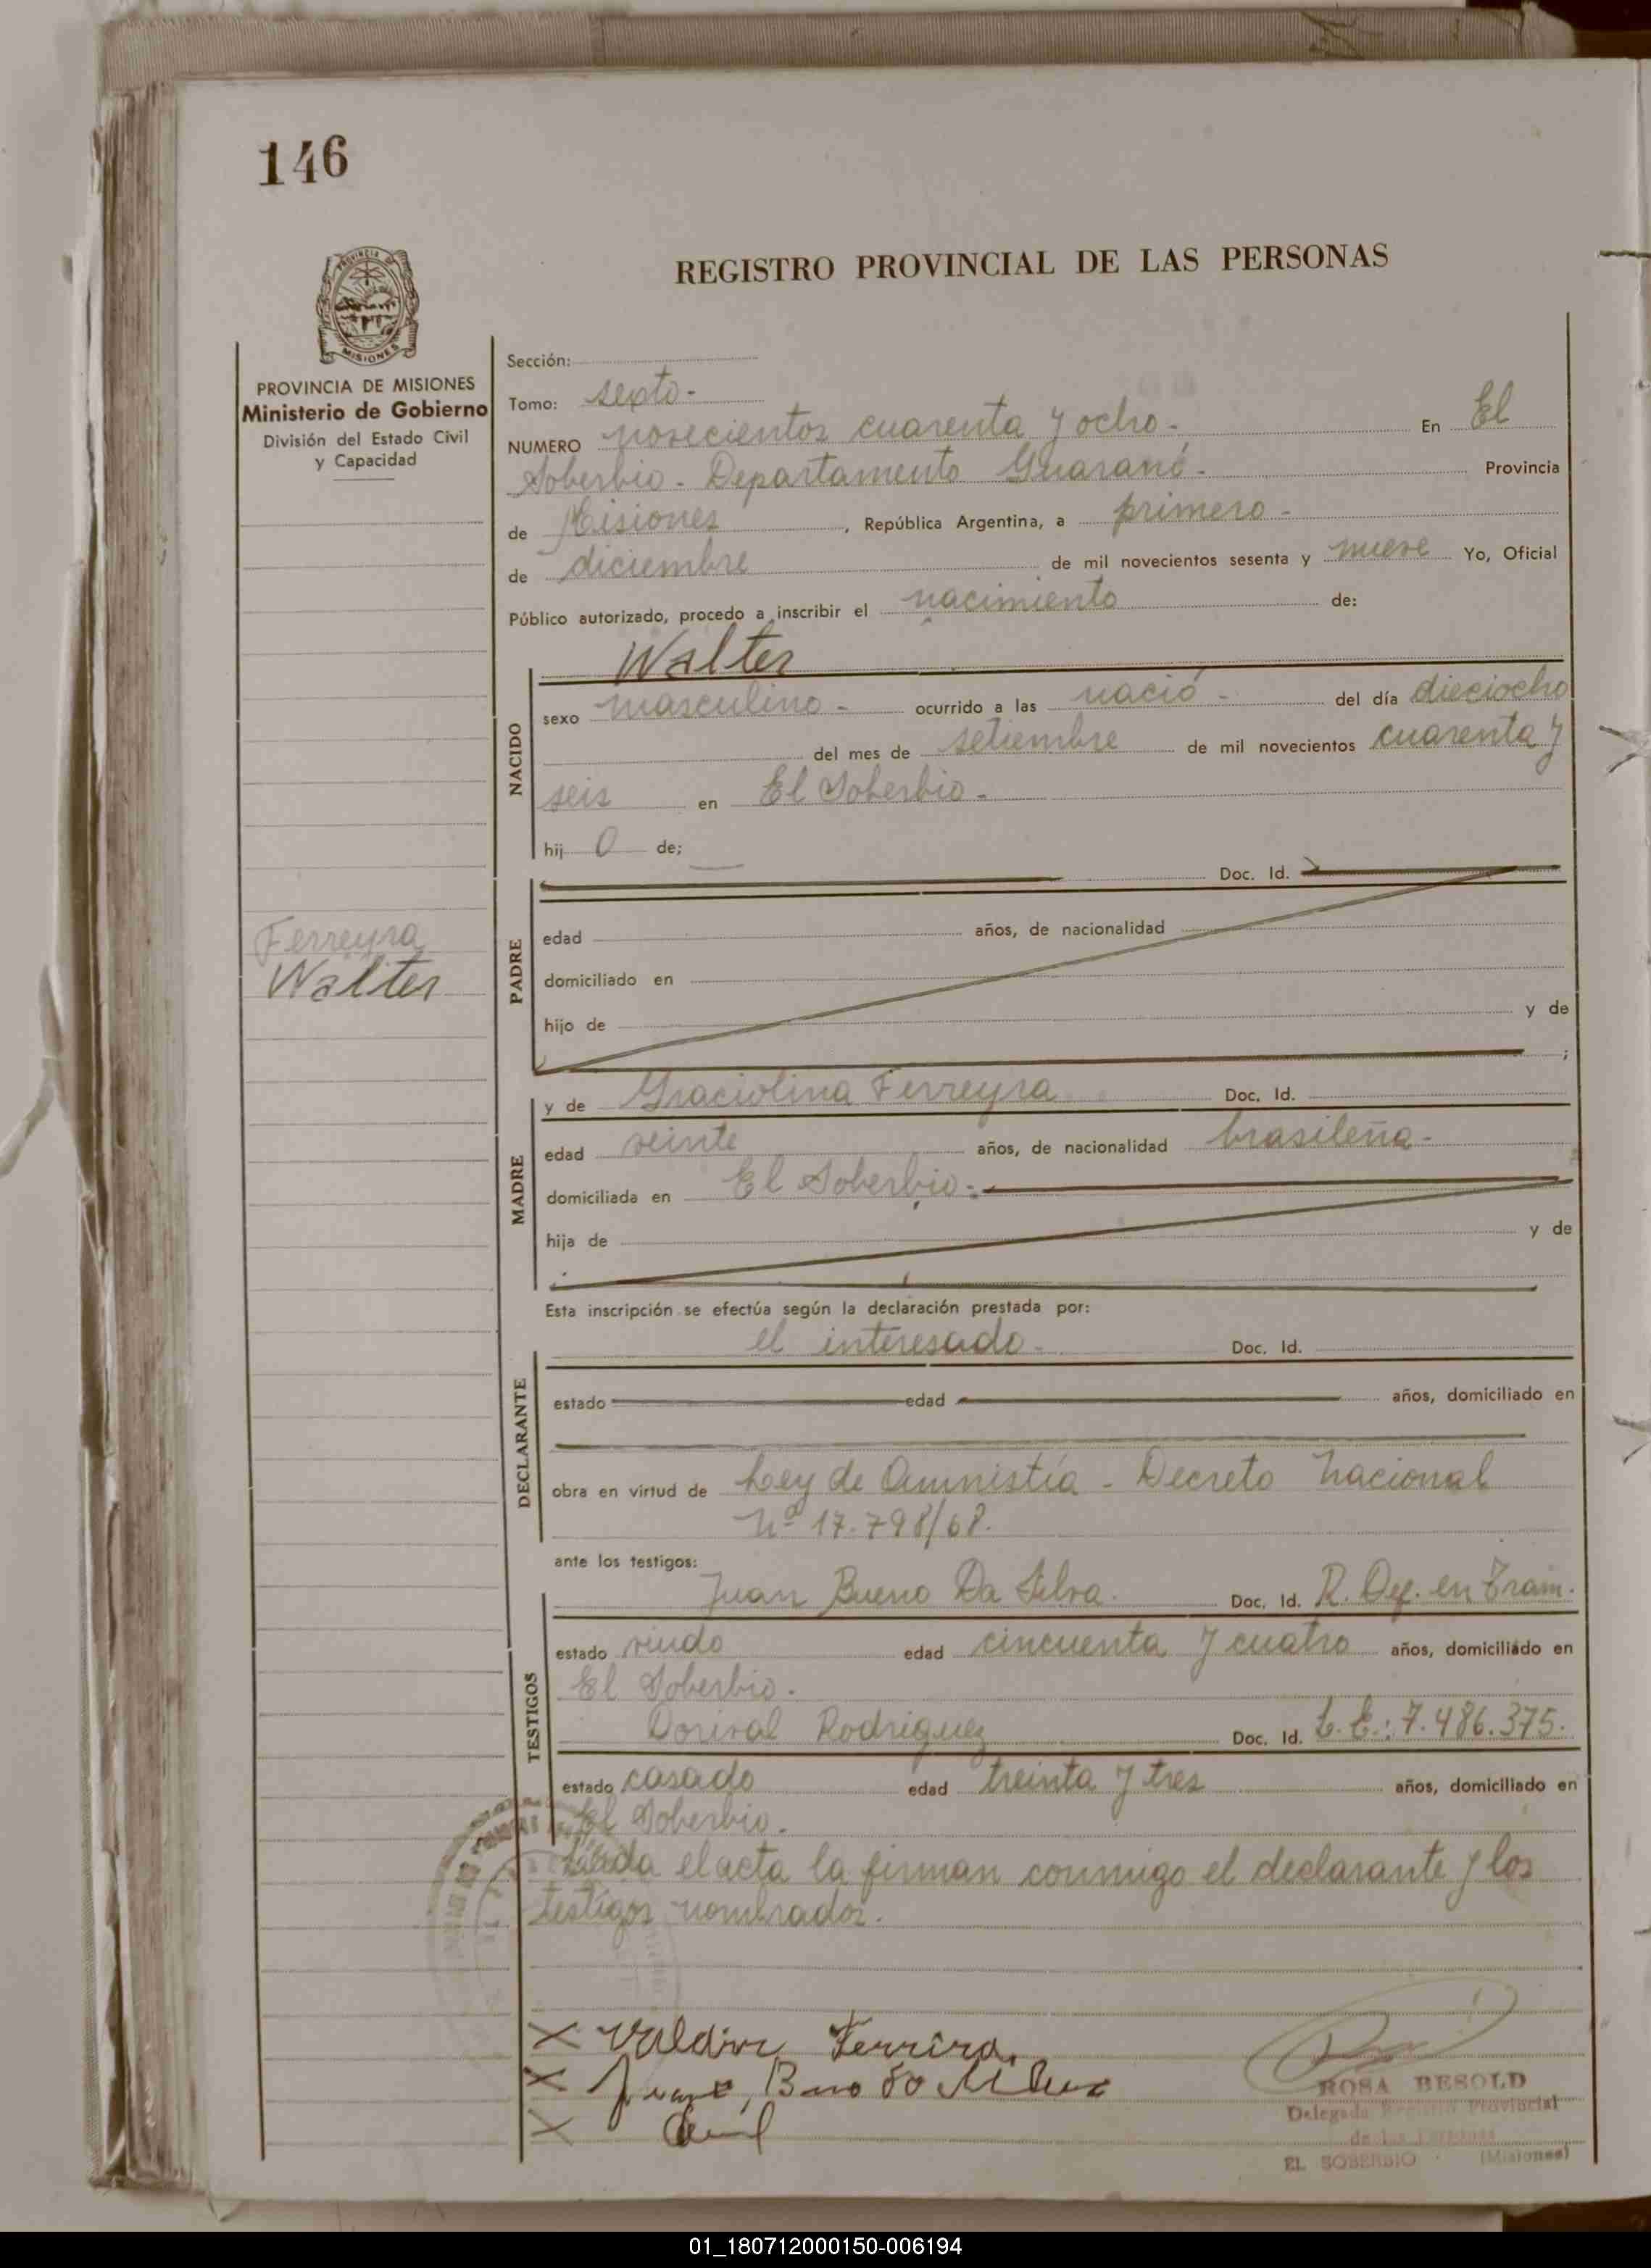 146
REGISTRO PROVINCIAL DE LAS PERSONAS
MISIONES
PROVINCIA DE MISIONES
Ministerio de Gobierno
División del Estado Civil
y Capacidad
Sección:
Tomo: sexto-
NUMERO novecientos cuarenta y ocho- En El
Soberbio- Departamento Guaraní- Provincia
de Misiones, República Argentina, a primero-
de diciembre de mil novecientos sesenta y nueve Yo, Oficial
Público autorizado, procedo a inscribir el nacimiento de:
Walter
NACIDO
sexo masculino- ocurrido a las nació- del día dieciocho
del mes de setiembre de mil novecientos cuarenta y
seis en El Soberbio-
hij o de;
Doc. Id.
PADRE
edad años, de nacionalidad
domiciliado en
hijo de y de
;
Ferreyra
Walter
y de Graciolina Ferreyra Doc. Id.
MADRE
edad veinte años, de nacionalidad brasileña-
domiciliada en El Soberbio-
hija de y de
Esta inscripción se efectúa según la declaración prestada por:
el interesado- Doc. Id.
DECLARANTE
estado edad años, domiciliado en
obra en virtud de Ley de Amnistía- Decreto Nacional
Nº 17.798/68.
ante los testigos:
Juan Bueno Da Silva. Doc. Id. R. Of. en Tram.
TESTIGOS
estado viudo edad cincuenta y cuatro años, domiciliado en
El Soberbio.
Dorival Rodriguez Doc. Id. L.E.: 7.486.375.
estado casado edad treinta y tres años, domiciliado en
El Soberbio.
Leída el acta la firman conmigo el declarante y los
testigos nombrados.
X Ferrira
X
X
ROSA BESOLD
Delegada Registro Provincial
de las Personas
EL SOBERBIO (Misiones)
01_180712000150-006194